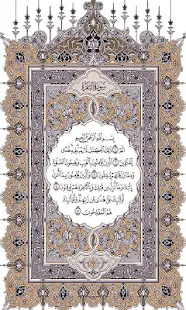 سورة البقرة
بِسْمِ اللَّهِ الرَّحْمَٰنِ الرَّحِيمِ
الٓمٓ ۝١ ذَٰلِكَ الْكِتَابُ لَا رَيْبَ ۛ فِيهِ ۛ هُدًى
لِّلْمُتَّقِينَ ۝٢ الَّذِينَ يُؤْمِنُونَ بِالْغَيْبِ وَيُقِيمُونَ الصَّلَوٰةَ
وَمِمَّا رَزَقْنَاهُمْ يُنفِقُونَ ۝٣ وَالَّذِينَ يُؤْمِنُونَ بِمَا أُنزِلَ
إِلَيْكَ وَمَا أُنزِلَ مِن قَبْلِكَ وَبِالْآخِرَةِ هُمْ يُوقِنُونَ ۝٤
أُولَٰئِكَ عَلَىٰ هُدًى مِّن رَّبِّهِمْ ۖ وَأُولَٰئِكَ
هُمُ الْمُفْلِحُونَ ۝٥